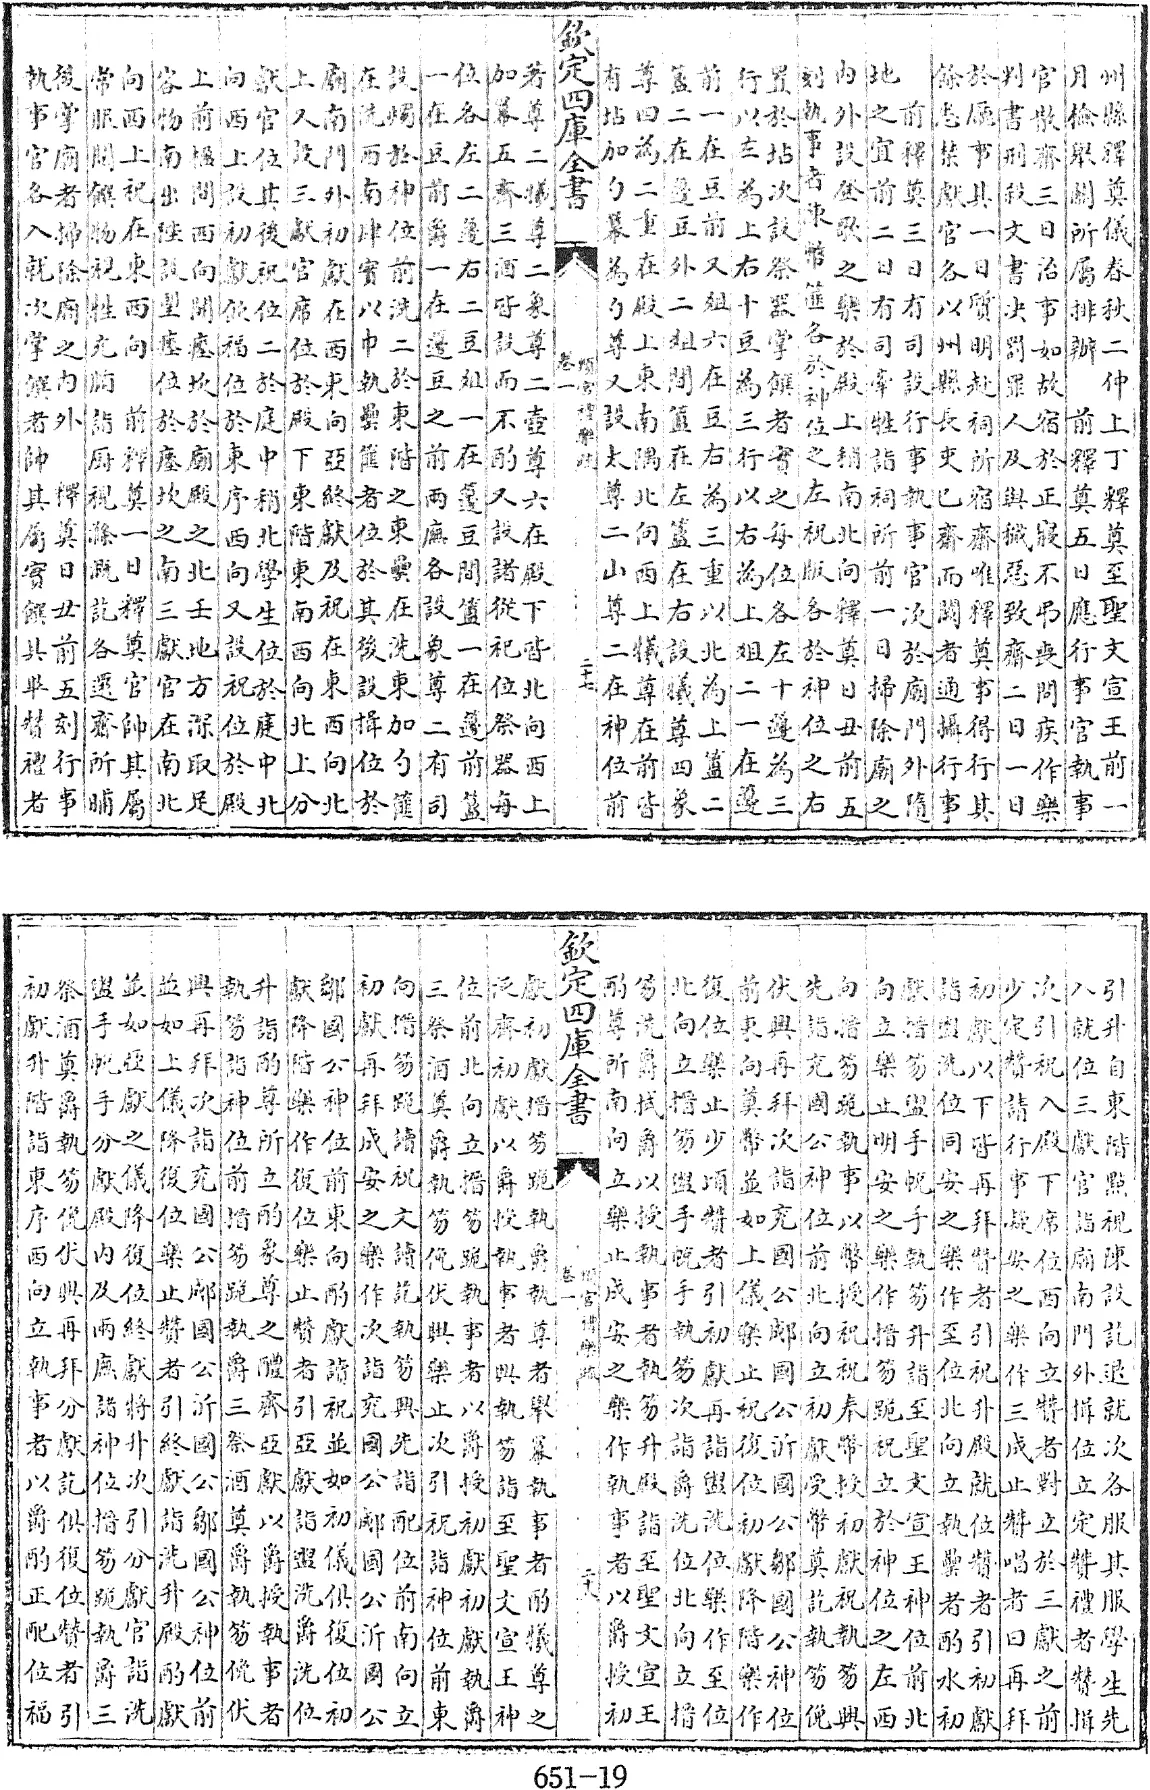 州縣釋奠儀春秋二仲上丁釋奠至聖文宣王前一
月檢舉關所屬排辦　前釋奠五日應行事官執事
官散齋三日治事如故宿於正寢不弔喪問疾作樂
判書刑殺文書決罰罪人及與穢惡致齋二日一日
於廳事其一日質明赴祠所宿齋唯釋奠事得行其
餘悉禁獻官各以州縣長吏已齋而闕者通攝行事
　前釋奠三日有司設行事執事官次於廟門外隨
地之宜前二日有司牽牲詣祠所前一日掃除廟之
內外設登歌之樂於殿上稍南北向釋奠日丑前五
刻執事者陳幣篚各於神位之左祝版各於神位之右
置於坫次設祭器掌饌者實之每位各左十籩為三
行以左為上右十豆為三行以右為上俎二一在籩
前一在豆前又俎六在豆右為三重以北為上簠二
簋二在籩豆外二俎間簠在左簋在右設犧尊四象
尊四為二重在殿上東南隅北向西上犧尊在前皆
有坫加勺冪為勺尊又設太尊二山尊二在神位前
欽定四庫全書
頖宮禮樂疏
卷一
二十七
著尊二犧尊二象尊二壺尊六在殿下皆北向西上
加冪五齊三酒皆設而不酌又設諸從祀位祭器每
位各左二籩右二豆俎一在籩豆間簠一在籩前簋
一在豆前爵一在籩豆之前兩廡各設象尊二有司
設燭於神位前洗二於東階之東罍在洗東加勺篚
在洗西南肆實以巾執罍篚者位於其後設揖位於
廟南門外初獻在西東向亞終獻及祝在東西向北
上又設三獻官席位於殿下東階東南西向北上分
獻官位其後祝位二於庭中稍北學生位於庭中北
向西上設初獻飲福位於東序西向又設祝位於殿
上前楹間西向開瘞坎於廟殿之北壬地方深取足
容物南出陛設望瘞位於瘞坎之南三獻官在南北
向西上祝在東西向　前釋奠一日釋奠官帥其屬
常服閱饌物視牲充腯詣厨視滌溉訖各還齋所晡
後掌廟者掃除廟之內外　釋奠日丑前五刻行事
執事官各入就次掌饌者帥其屬實饌具畢贊禮者
引升自東階點視陳設訖退就次各服其服學生先
入就位三獻官詣廟南門外揖位立定贊禮者贊揖
次引祝入殿下席位西向立贊者對立於三獻之前
少定贊請行事凝安之樂作三成止贊唱者曰再拜
初獻以下皆再拜贊者引祝升殿就位贊者引初獻
詣盥洗位同安之樂作至位北向立執罍者酌水初
獻搢笏盥手帨手執笏升詣至聖文宣王神位前北
向立樂止明安之樂作搢笏跪祝立於神位之左西
向搢笏跪執事以幣授祝祝奉幣授初獻祝執笏興
先詣兖國公神位前北向立初獻受幣奠訖執笏俛
伏興再拜次詣兖國公郕國公沂國公鄒國公神位
前東向奠幣並如上儀樂止祝復位初獻降階樂作
復位樂止少頃贊者引初獻再詣盥洗位樂作至位
北向立搢笏盥手帨手執笏次詣爵洗位北向立搢
笏洗爵拭爵以授執事者執笏升殿詣至聖文宣王
酌尊所南向立樂止成安之樂作執事者以爵授初
欽定四庫全書
頖宮禮樂疏
卷一
二十八
獻初獻搢笏跪執爵執尊者舉冪執事者酌犧尊之
泛齊初獻以爵授執事者興執笏詣至聖文宣王神
位前北向立搢笏跪執事者以爵授初獻初獻執爵
三祭酒奠爵執笏俛伏興樂止次引祝詣神位前東
向搢笏跪讀祝文讀訖執笏興先詣配位前南向立
初獻再拜成安之樂作次詣兖國公郕國公沂國公
鄒國公神位前東向酌獻讀祝並如初儀俱復位初
獻降階樂作復位樂止贊者引亞獻詣盥洗爵洗位
升詣酌尊所立酌象尊之醴齊亞獻以爵授執事者
執笏詣神位前搢笏跪執爵三祭酒奠爵執笏俛伏
興再拜次詣兖國公郕國公沂國公鄒國公神位前
並如上儀降復位樂止贊者引終獻詣洗升殿酌獻
並如亞獻之儀降復位終獻將升次引分獻官詣洗
盥手帨手分獻殿內及兩廡詣神位搢笏跪執爵三
祭酒奠爵執笏俛伏興再拜分獻訖俱復位贊者引
初獻升階詣東序西向立執事者以爵酌正配位福
651-19